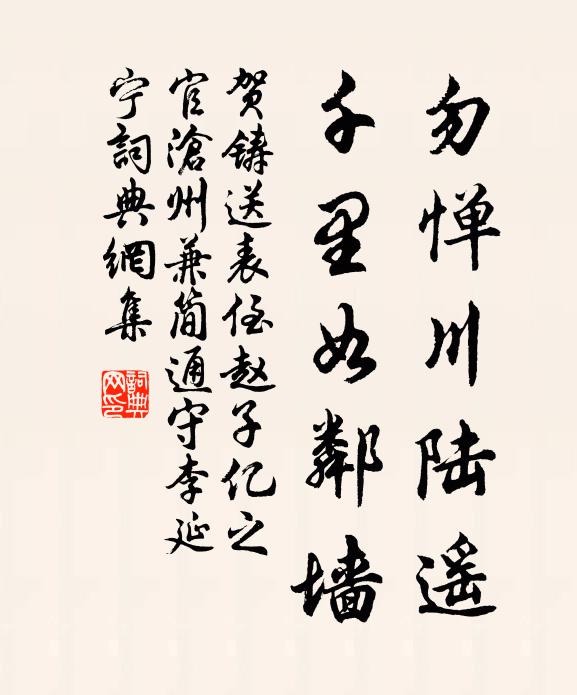 勿惮川陆遥
千里如鄰墙
贺铸送表侄赵子亿之
官滄州兼简通守李延
宁詞典網集
詞典
网印